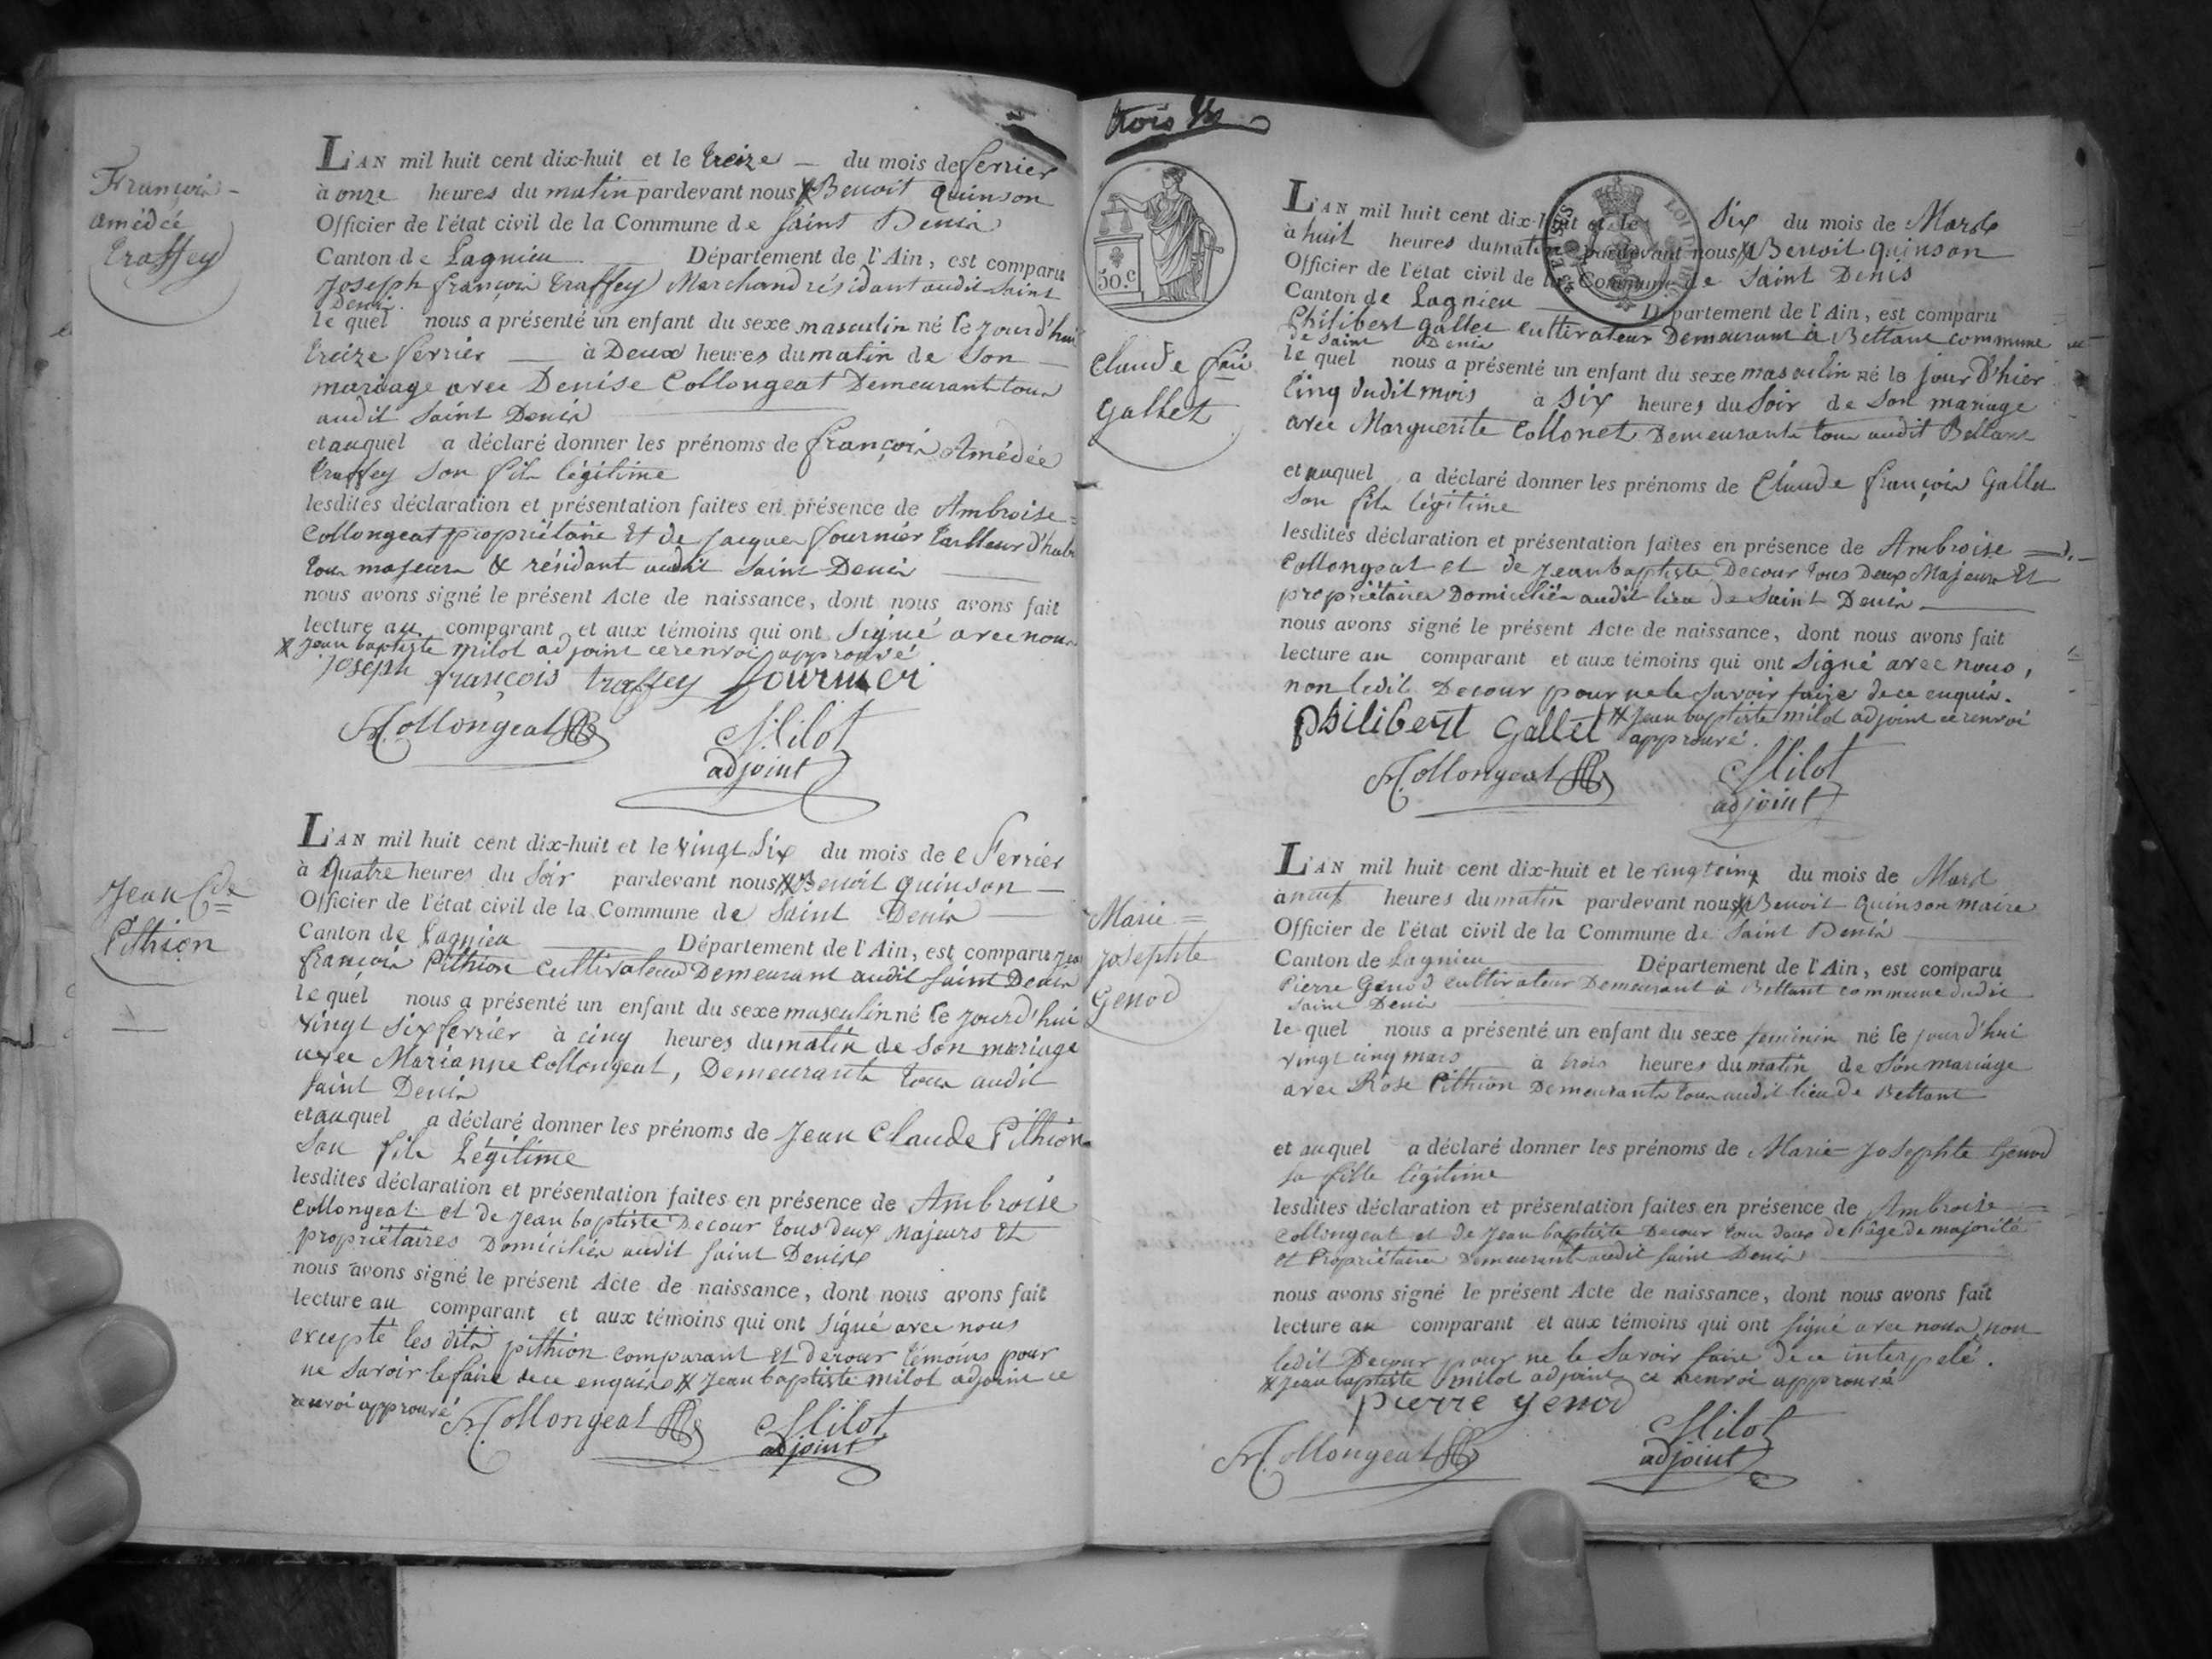 François-
amédée
traffey
L'AN mil huit cent dix-huit et le treize — du mois de ferrier
à onze heures du matin pardevant nous X Benoit quinson
Officier de l'état civil de la Commune de saint Denis
Canton de Lagnieu Département de l'Ain, est comparu
Joseph françois traffey Marchand résidant audit saint
Denis.
le quel nous a présenté un enfant du sexe masculin né le jourd'hui
treize ferrier — à Deux heures du matin de son
mariage avec Denise Collongeat Demeurants tous
audit saint Denis
et auquel a déclaré donner les prénoms de françois Amédée
traffey son fils légitime
lesdites déclaration et présentation faites en présence de Ambroise
Collongeat propriétaire Et de jacques fournier tailleur d'habi
tous majeurs & résidant audit saint Denis
nous avons signé le présent Acte de naissance, dont nous avons fait
lecture au comparant et aux témoins qui ont signé avec nous
X Jean baptiste milot adjoint ce renvoi approuvé
joseph françois traffey fournier
Collongeat
Milot
adjoint
Jean Cde
Pithion
L'AN mil huit cent dix-huit et le vingt six du mois de Ferrier
à Quatre heures du soir pardevant nous X Benoit quinson
Officier de l'état civil de la Commune de saint Denis
Canton de Lagnieu Département de l'Ain, est comparu
françois Pithion cultivateur Demeurant audit saint Denis
le quel nous a présenté un enfant du sexe masculin né le jourd'hui
vingt six ferrier à cinq heures du matin de son mariage
avec Marianne Collongeat, Demeurants tous audit
saint Denis
et auquel a déclaré donner les prénoms de Jean Claude Pithion
son fils Légitime
lesdites déclaration et présentation faites en présence de Ambroise
Collongeat et de jean baptiste Decour tous deux Majeurs Et
propriétaires Domiciliés audit saint Denis
nous avons signé le présent Acte de naissance, dont nous avons fait
lecture au comparant et aux témoins qui ont signé avec nous
excepté les dits pithion comparant et decour témoins pour
ne savoir le faire de ce enquis X Jean baptiste milot adjoint ce
renvoi approuvé
Collongeat
Milot
adjoint
trois
50.c
Claude fois
Gallet
L'AN mil huit cent dix-huit et le Six du mois de Mars
à huit heures du matin pardevant nous X Benoit quinson
Officier de l'état civil de la Commune de saint Denis
Canton de Lagnieu Département de l'Ain, est comparu
Philibert gallet cultivateur Demeurant à Bettant commune
de saint Denis
le quel nous a présenté un enfant du sexe masculin né le jour D'hier
Cinq dudit mois à six heures du soir de son mariage
avec Marguerite Collonet Demeurants tous audit Bettant
et auquel a déclaré donner les prénoms de Claude françois Gallet
son fils légitime
lesdites déclaration et présentation faites en présence de Ambroise
Collongeat et de jean baptiste Decour tous Deux Majeurs Et
propriétaires Domiciliés audit lieu de Saint Denis
nous avons signé le présent Acte de naissance, dont nous avons fait
lecture au comparant et aux témoins qui ont signé avec nous,
non ledit Decour pour ne le savoir faire de ce enquis.
X Jean baptiste milot adjoint ce renvoi
approuvé.
Philibert Gallet
Collongeat
Milot
adjoint
Marie
josephte
Genod
L'AN mil huit cent dix-huit et le vingt cinq du mois de Mars
à neuf heures du matin pardevant nous X Benoit quinson maire
Officier de l'état civil de la Commune de saint Denis
Canton de Lagnieu Département de l'Ain, est comparu
Pierre Genod cultivateur Demeurant à Bettant commune dudit
saint Denis
le quel nous a présenté un enfant du sexe feminin né le jourd'hui
vingt cinq mars à trois heures du matin de son mariage
avec Rose Pithion Demeurants tous audit lieu de Bettant
et auquel a déclaré donner les prénoms de Marie Josephte Genod
sa fille légitime
lesdites déclaration et présentation faites en présence de Ambroise
Collongeat et de jean baptiste Decour tous deux de l'âge de majorité
et Propriétaires Demeurants audit saint Denis
nous avons signé le présent Acte de naissance, dont nous avons fait
lecture au comparant et aux témoins qui ont signé avec nous, non
ledit Decour pour ne le savoir faire de ce interpelé.
X Jean baptiste milot adjoint ce renvoi approuvé
pierre genod
Collongeat
Milot
adjoint